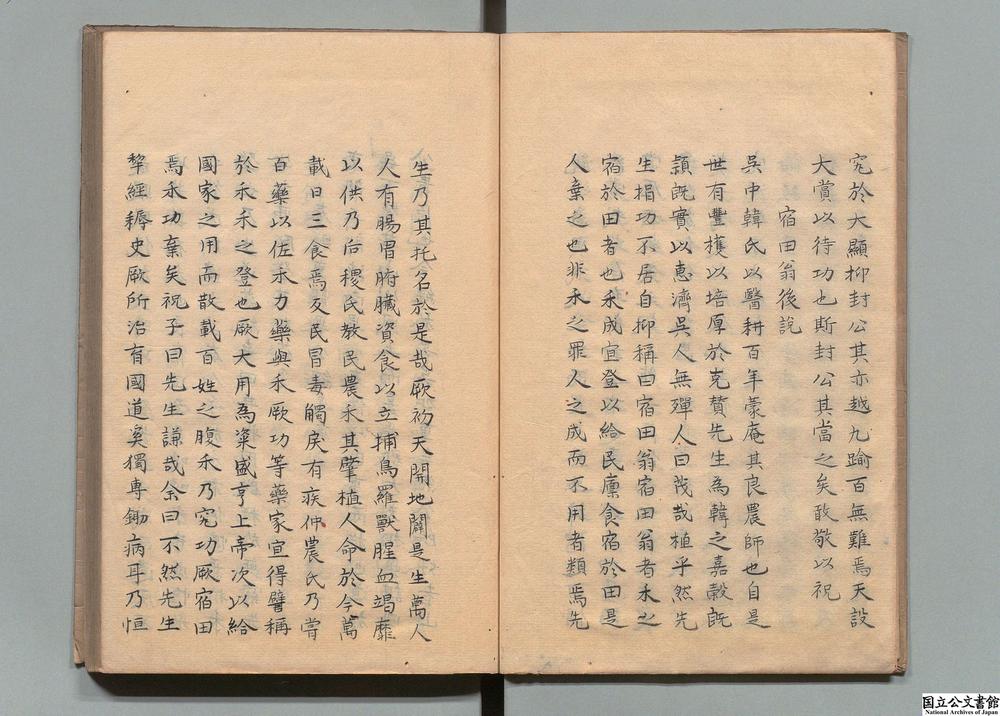 宄於大顯抑封公其亦越九踰百無難焉天設
大賞以待功也斯封公其當之矣敢敬以祝
宿田翁後說
吳中韓氏以醫耕百年蒙庵其良農師也自是
世有豐穫以培厚於克贊先生為韓之嘉穀既
穎既實以惠濟吳人無殫人曰茂哉植乎然先
生捐功不居自抑稱曰宿田翁宿田翁者禾之
宿於田者也禾成宜登以給民廩食宿於田是
人棄之也非禾之罪人之成而不用者類焉先
生乃其托名於是哉厥初天開地闢是生萬人
人有腸胃腑臟資食以立捕鳥羅獸腥血竭靡
以供乃后稷氏教民農禾其肇植人命於今萬
載日三食焉及民冒毒觸戾有疾仲農氏乃嘗
百藥以佐禾力藥與禾厥功等藥家宜得譬稱
於禾禾之登也厥大用為粢盛亨上帝次以給
國家之用而散載百姓之腹禾乃宄功厥宿田
焉禾功棄矣祝子曰先生謙哉余曰不然先生
犂經耨史厥所治有國道奚獨專鋤病耳乃恒
国立公文書館
National Archives of Japan